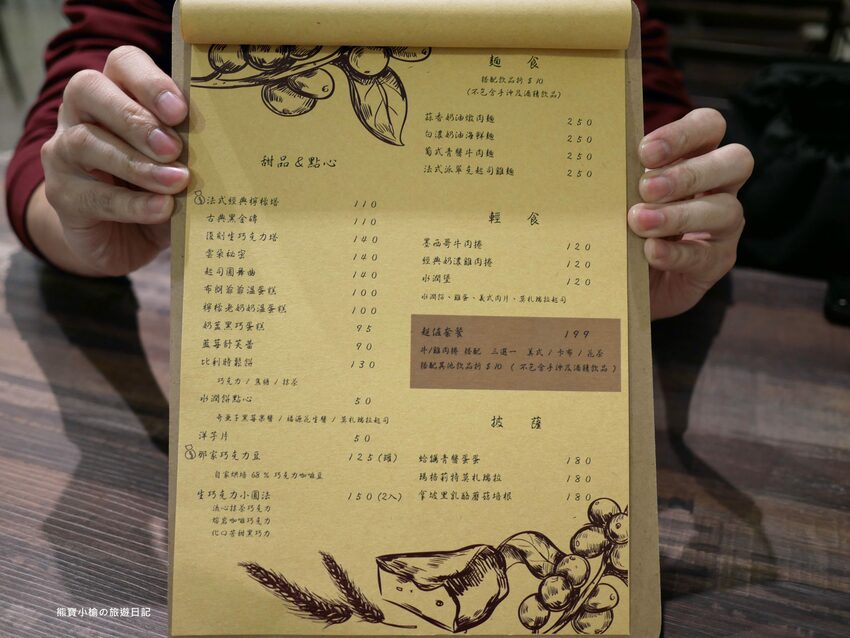 甜品&點心
法式經典檸檬塔 110
古典黑金磚 110
復刻生巧克力塔 140
雲朵祕密 140
起司圓舞曲 140
布朗蓉蓉溫蛋糕 100
檸檬老奶奶溫蛋糕 100
奶蓋黑巧蛋糕 95
藍莓舒芙蕾 90
比利時鬆餅 130
巧克力 / 焦糖 / 抹茶
水潤餅點心 50
奇亞子黑莓果醬 / 福源花生醬 / 莫札瑞拉起司
洋芋片 50
那家巧克力豆 125(罐)
自家烘焙 68% 巧克力咖啡豆
生巧克力小圓法 150(2入)
流心抹茶巧克力
熔岩咖啡巧克力
化口苦甜黑巧克力
麵 食
搭配飲品折 $10
(不包含手沖及酒精飲品)
蒜香奶油燉肉麵 250
白濃奶油海鮮麵 250
葡式青醬牛肉麵 250
法式派翠克起司雞麵 250
輕 食
墨西哥牛肉捲 120
經典奶濃雞肉捲 120
水潤堡 120
水潤餅、雞蛋、義式肉片、莫札瑞拉起司
超值套餐 199
牛/雞肉捲 搭配 三選一 美式 / 卡布 / 花茶
搭配其他飲品折 $10 ( 不包含手沖及酒精飲品 )
披 薩
蛤蠣青醬蛋蛋 180
瑪格莉特莫札瑞拉 180
拿坡里乳酪蘑菇培根 180
熊寶小榆の旅遊日記